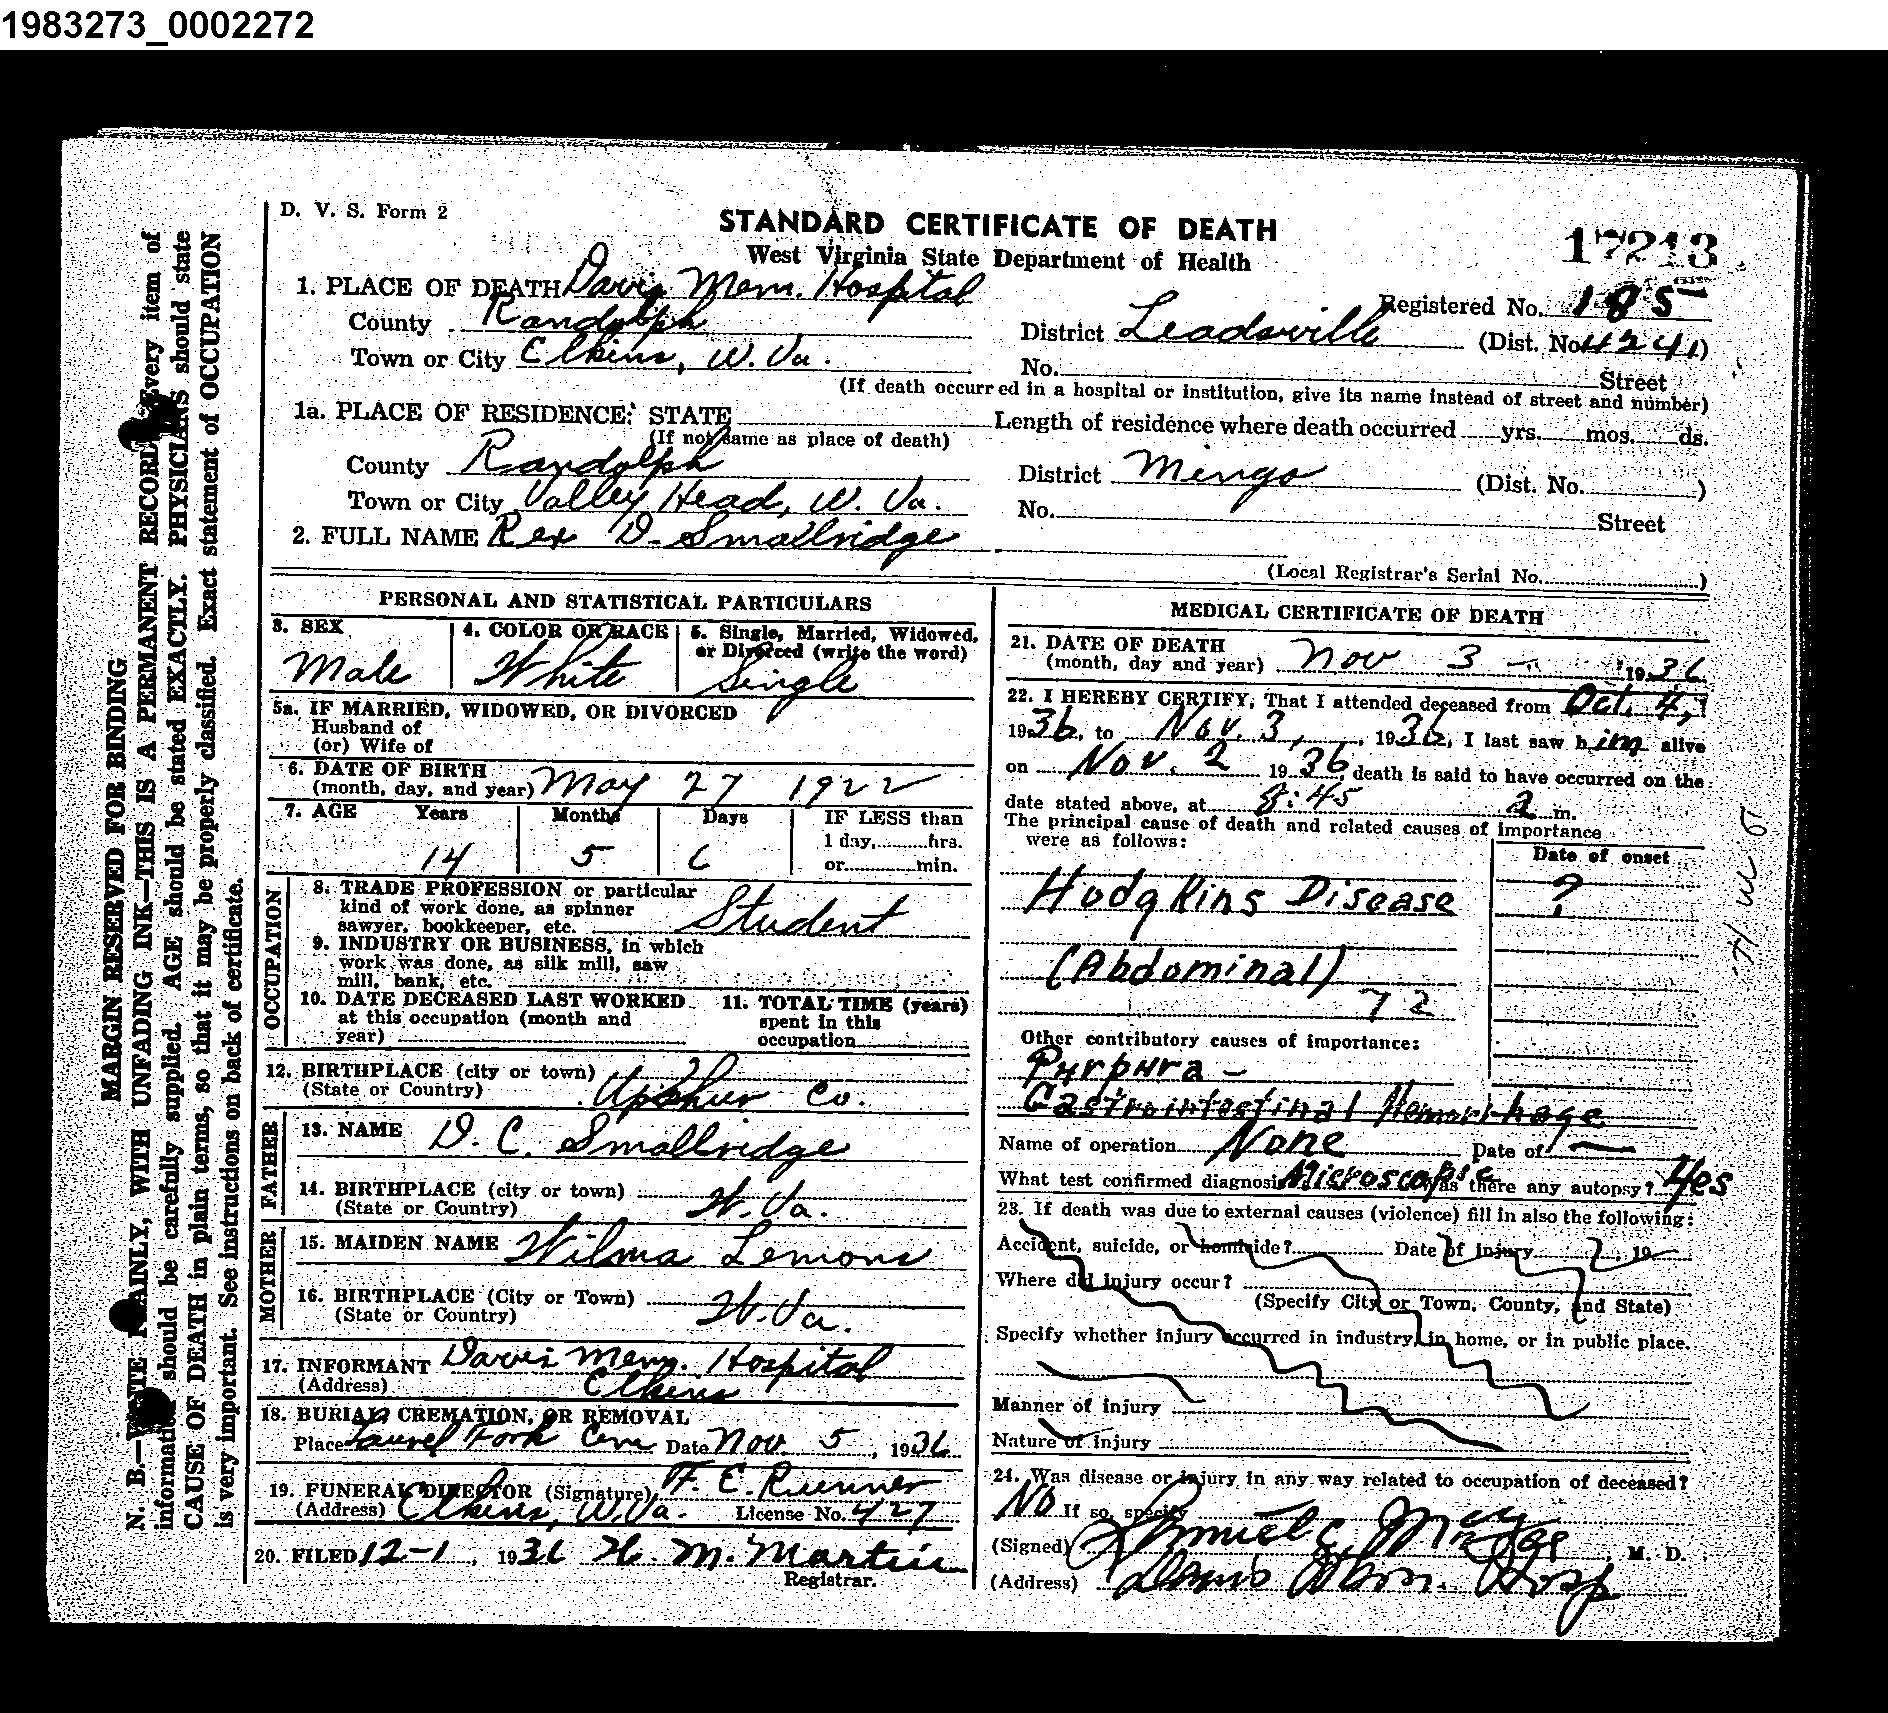 1983273_0002272
D. V. S. Form 2
STANDARD CERTIFICATE OF DEATH
West Virginia State Department of Health
17213
1. PLACE OF DEATH Davis Mem. Hospital
Registered No. 185
County Randolph
District Leadsville (Dist. No. 4241)
Town or City Elkins, W. Va.
No. Street
(If death occurred in a hospital or institution, give its name instead of street and number)
1a. PLACE OF RESIDENCE: STATE
Length of residence where death occurred yrs. mos. ds.
(If not same as place of death)
County Randolph
District Mingo (Dist. No. )
Town or City Valley Head, W. Va.
No. Street
2. FULL NAME Rex D. Smallridge
(Local Registrar's Serial No. )
PERSONAL AND STATISTICAL PARTICULARS
3. SEX
Male
4. COLOR OR RACE
White
5. Single, Married, Widowed,
or Divorced (write the word)
Single
5a. IF MARRIED, WIDOWED, OR DIVORCED
Husband of
(or) Wife of
6. DATE OF BIRTH
(month, day, and year) May 27 1922
7. AGE Years Months Days IF LESS than
1 day, hrs.
or min.
14 5 6
OCCUPATION
8. TRADE PROFESSION or particular
kind of work done, as spinner
sawyer, bookkeeper, etc. Student
9. INDUSTRY OR BUSINESS, in which
work was done, as silk mill, saw
mill, bank, etc.
10. DATE DECEASED LAST WORKED
at this occupation (month and
year)
11. TOTAL TIME (years)
spent in this
occupation
12. BIRTHPLACE (city or town)
(State or Country) Upshur Co.
FATHER
13. NAME D. C. Smallridge
14. BIRTHPLACE (city or town)
(State or Country) W. Va.
MOTHER
15. MAIDEN NAME Wilma Lemons
16. BIRTHPLACE (City or Town)
(State or Country) W. Va.
17. INFORMANT Davis Mem. Hospital
(Address) Elkins
18. BURIAL, CREMATION, OR REMOVAL
Place Laurel Fork Cem Date Nov. 5, 1936
19. FUNERAL DIRECTOR (Signature) F. E. Runner
(Address) Elkins, W. Va. License No. 427
20. FILED 12-1, 1936 H. M. Martin
Registrar.
MEDICAL CERTIFICATE OF DEATH
21. DATE OF DEATH
(month, day and year) Nov 3 — 1936
22. I HEREBY CERTIFY, That I attended deceased from Oct. 4,
1936, to Nov. 3, 1936, I last saw him alive
on Nov. 2 1936, death is said to have occurred on the
date stated above, at 8:45 a m.
The principal cause of death and related causes of importance
were as follows:
Date of onset
Hodgkins Disease ?
(Abdominal)
72
Other contributory causes of importance:
Purpura —
Gastrointestinal Hemorrhage
Name of operation None Date of —
What test confirmed diagnosis Microscopic Was there any autopsy? Yes
23. If death was due to external causes (violence) fill in also the following:
Accident, suicide, or homicide? Date of injury , 19
Where did injury occur?
(Specify City or Town, County, and State)
Specify whether injury occurred in industry, in home, or in public place.
Manner of injury
Nature of injury
24. Was disease or injury in any way related to occupation of deceased?
No If so, specify
(Signed) M. D.
(Address) Davis Mem. Hosp
MARGIN RESERVED FOR BINDING
N. B.—WRITE PLAINLY, WITH UNFADING INK—THIS IS A PERMANENT RECORD. Every item of
information should be carefully supplied. AGE should be stated EXACTLY. PHYSICIANS should state
CAUSE OF DEATH in plain terms, so that it may be properly classified. Exact statement of OCCUPATION
is very important. See instructions on back of certificate.